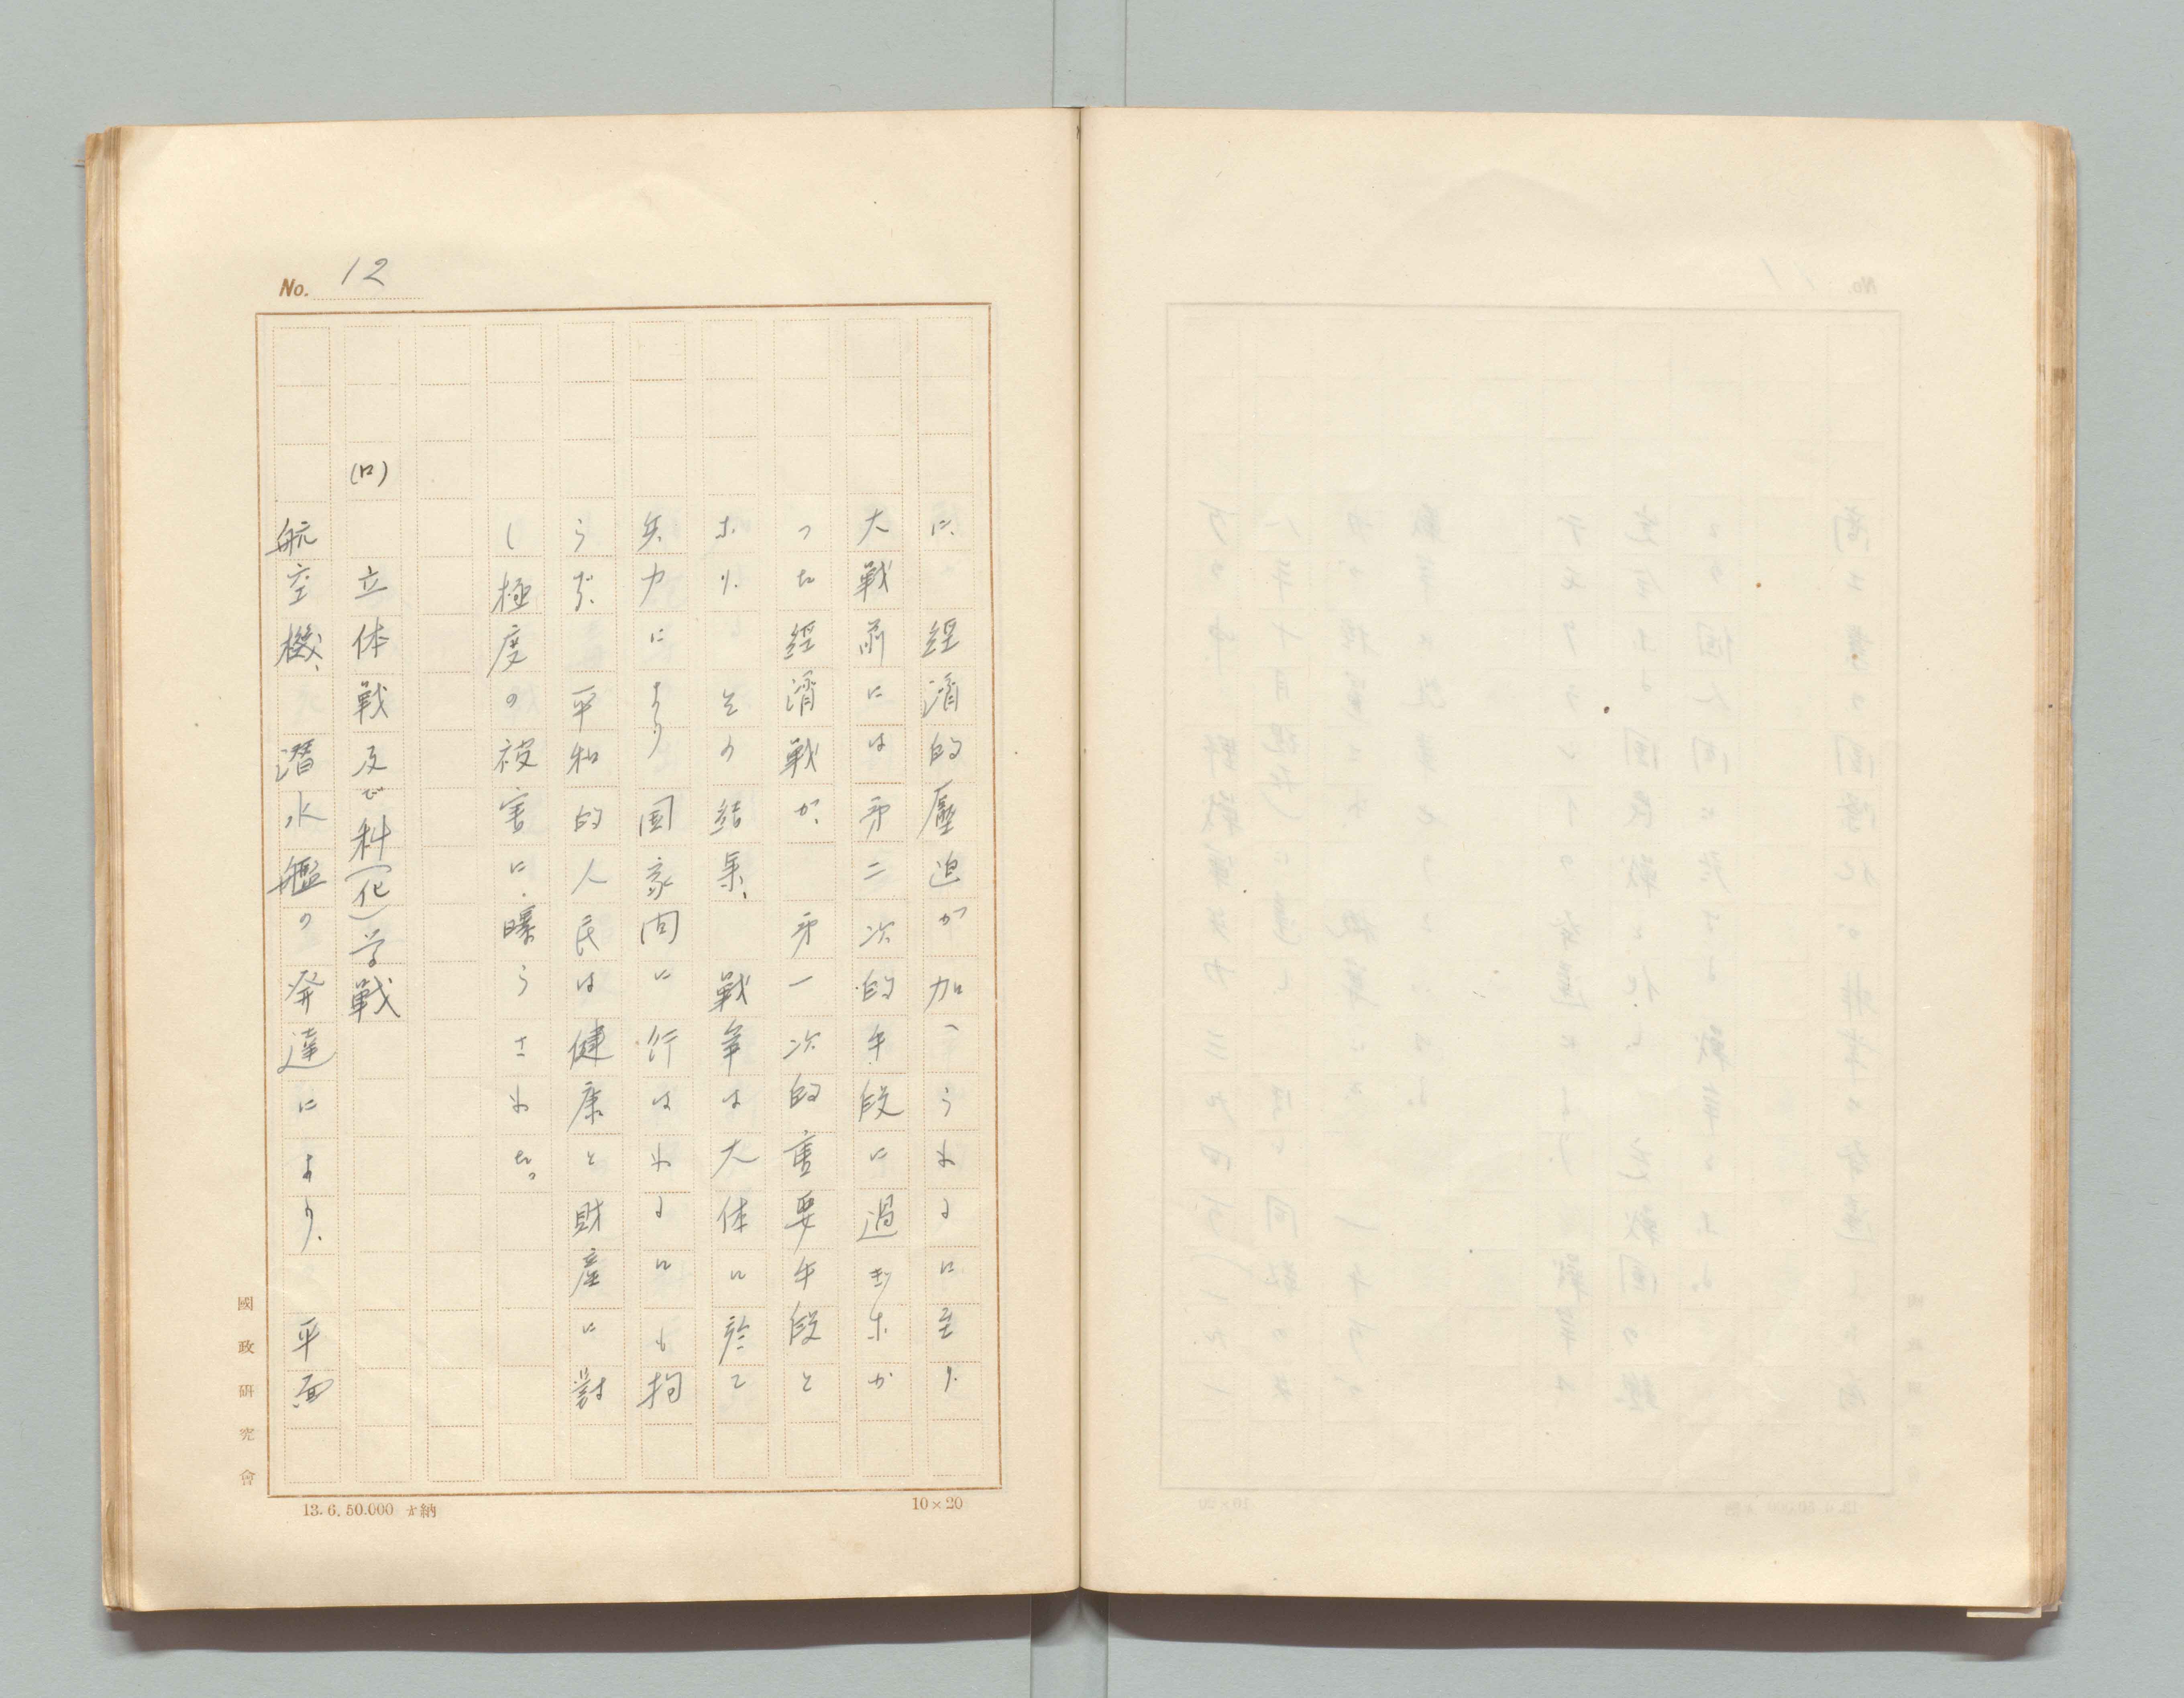 No. 12
に、経済的壓迫が加へられるに至り、
大戦前には第二次的手段に過ぎなか
つた経済戦が、第一次的重要手段と
なり、その結果、戦争は大体に於て
兵力により国家間に行はれるにも拘
らず、平和的人民は健康と財産に對
し極度の被害に曝らされた。
(ロ) 立体戦及び科(化)学戦
航空機、潜水艦の発達により、平面
國政研究會
13. 6. 50.000 納
10×20